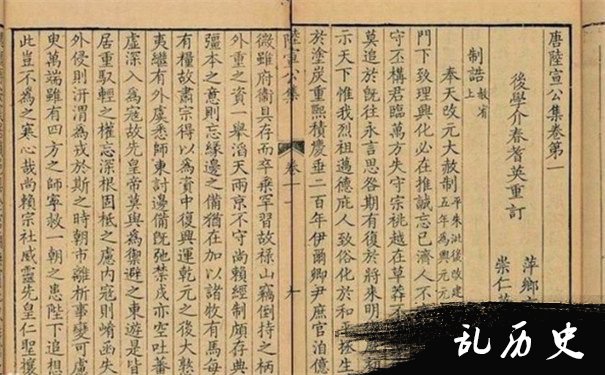 唐陸宣公集卷第一
後學介春耆英重訂
萍鄉
崇仁
制誥 赦宥上
奉天改元大赦制 平朱泚後改建五年為興元
門下致理興化必在推誠忘己濟人不
守丕構君臨萬方失守宗祧越在草莽不
莫追於既往永言思咎期有復於將來明
示天下惟我烈祖邁德庇人致俗化於和平拯生
於塗炭重熙積慶垂二百年伊爾卿尹庶官洎億
陸宣公集 卷十一
微雖府衞具存而卒乘罕習故祿山竊倒持之柄
外重之資一舉滔天兩京不守尚賴經制頗存典
彊本之意則忘緣邊之備猶在加以諸牧有馬每
有糧故肅宗得以為資中復興運乾元之後大憝
夷繼有外虞悉師東討邊備既弛禁戎亦空吐蕃
虛深入為寇故先皇帝莫與為禦避之東遊是皆
居重馭輕之權忘深根固柢之慮內寇則崤函失
外侵則汧渭為戎於斯之時朝市離析事變可慮
臾萬端雖有四方之師寧救一朝之患陛下追想
此豈不為之寒心哉尚賴宗社威靈先皇仁聖攘
乱历史